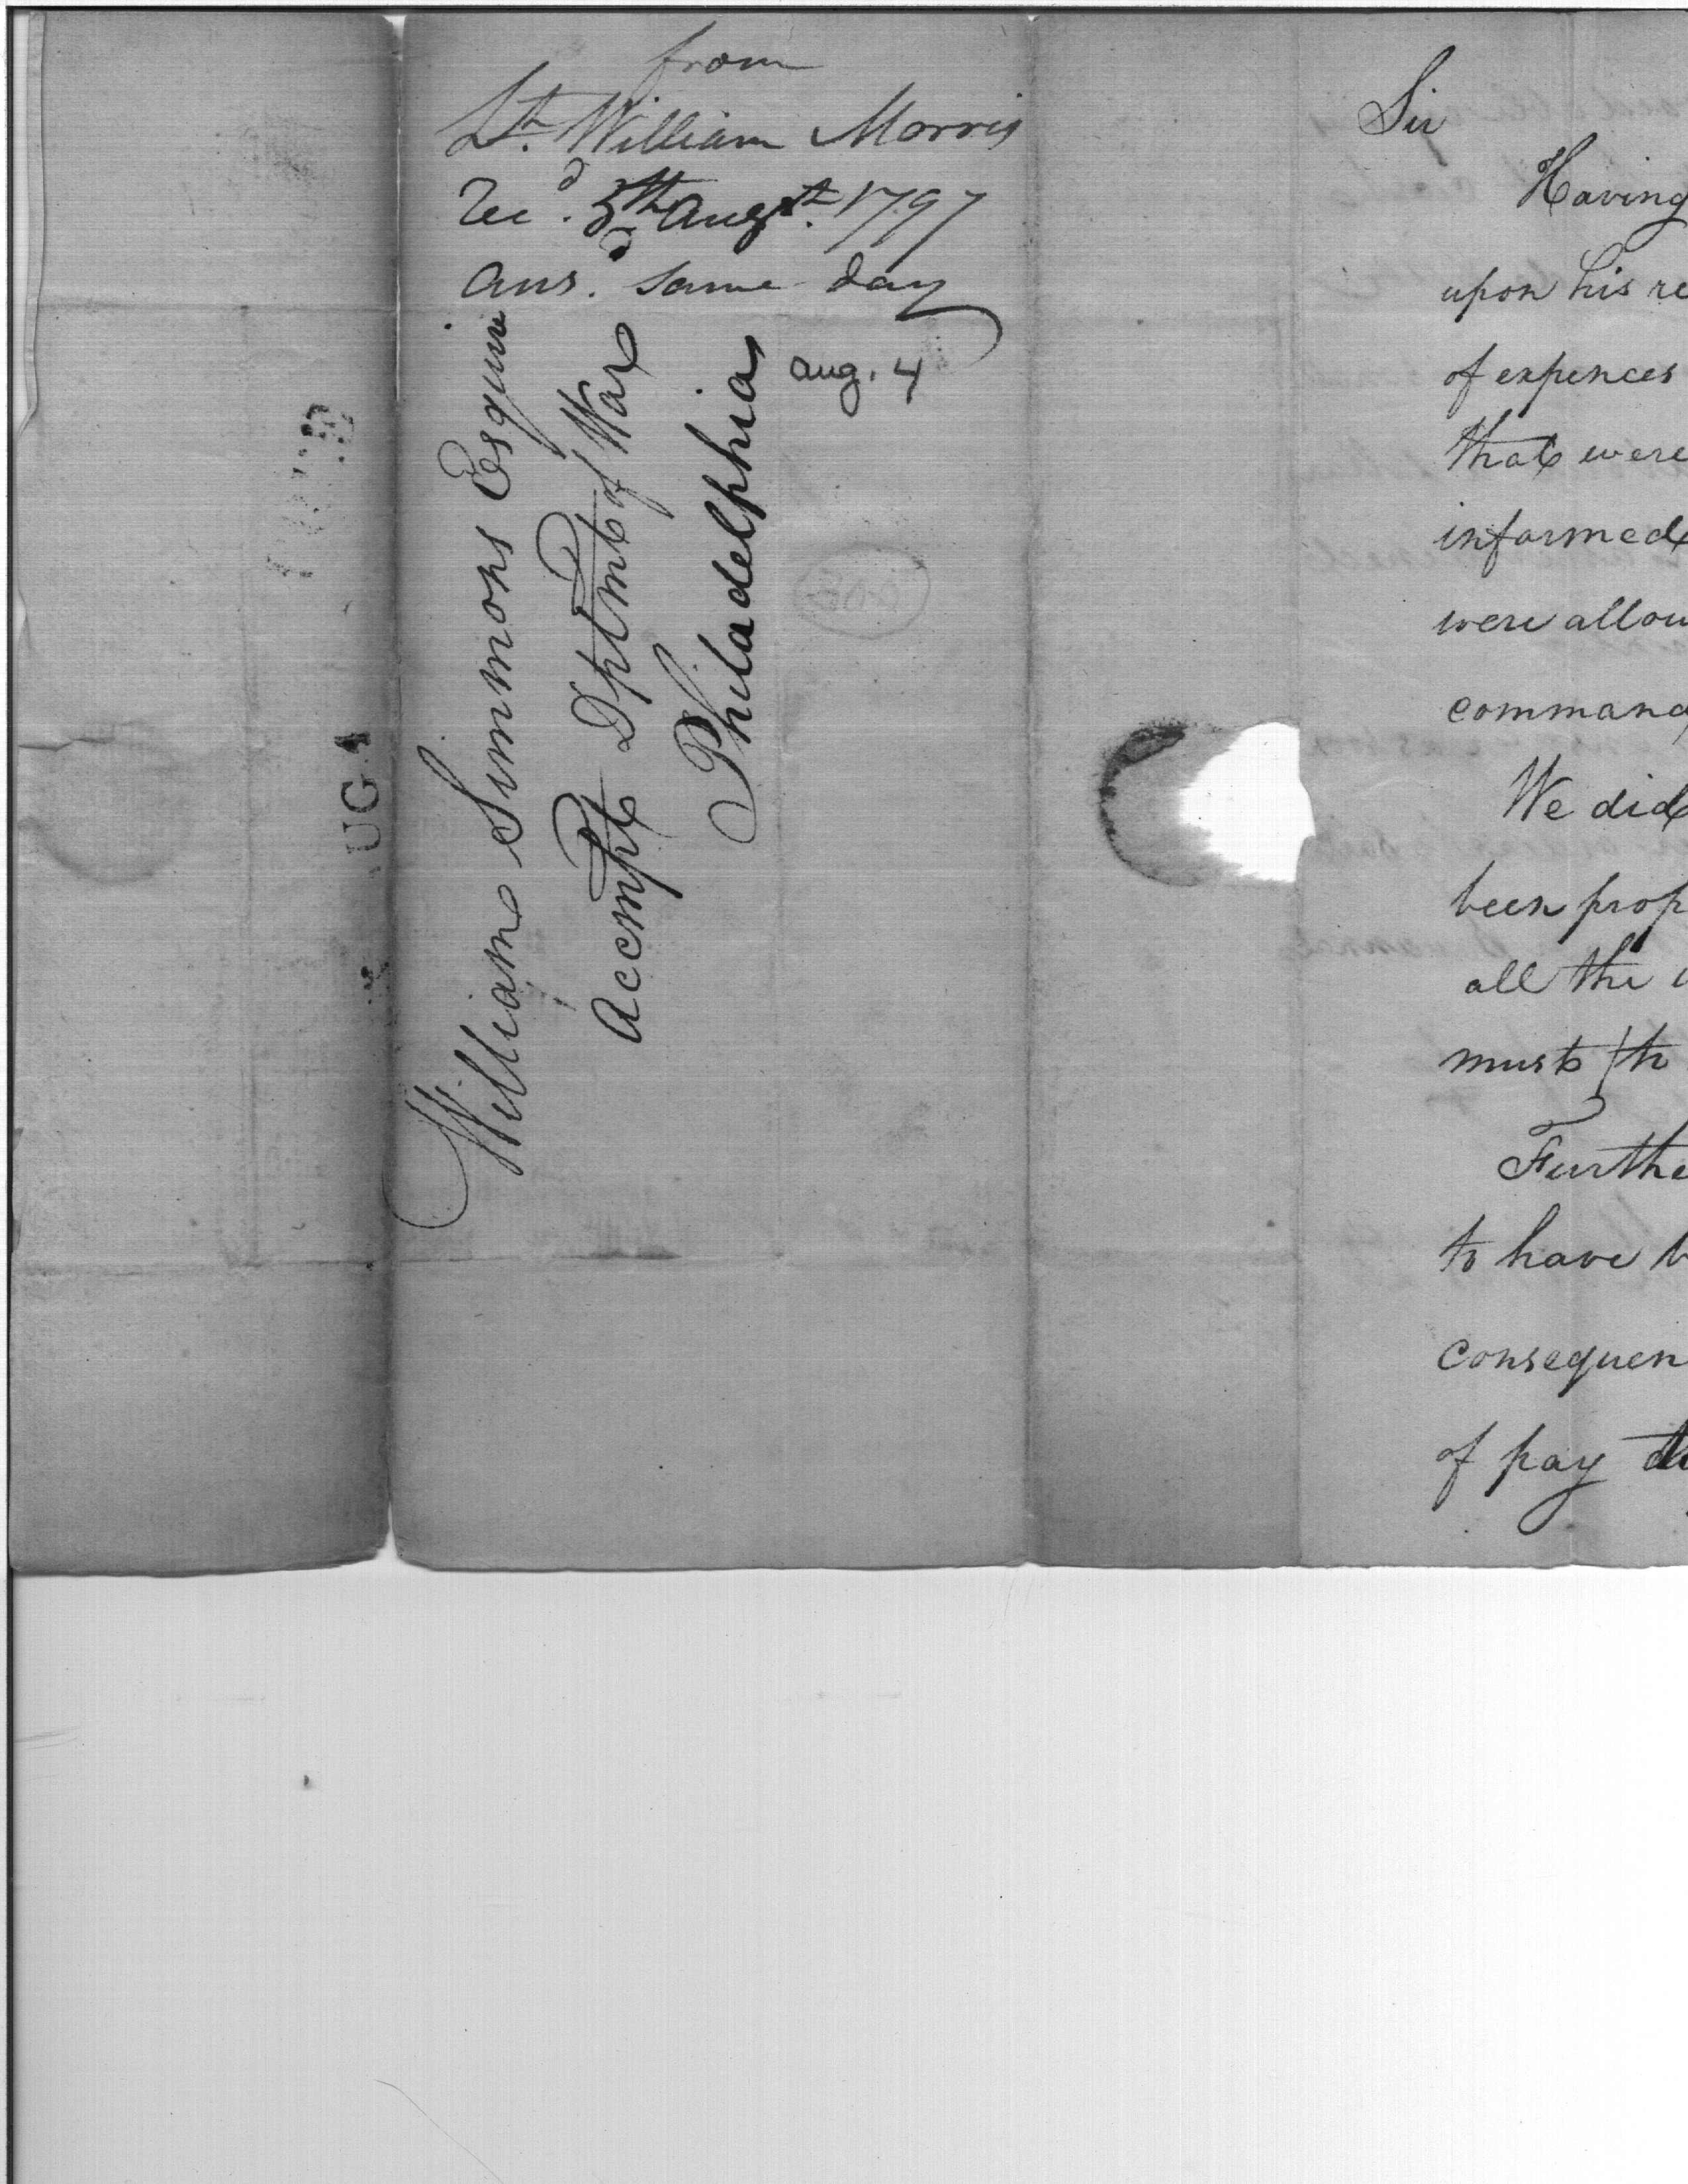 from
Lt. William Morris
Recd. 5th Augst. 1797
Ansd. same day
Aug. 4
William Simmons Esquire
Accompt Dptment of War
Philadelphia
UG 4
Sir
Having
upon his re
of expences
that were
informed
were allow
command
We did
been prop
all the
must
Furthe
to have b
consequen
of pay